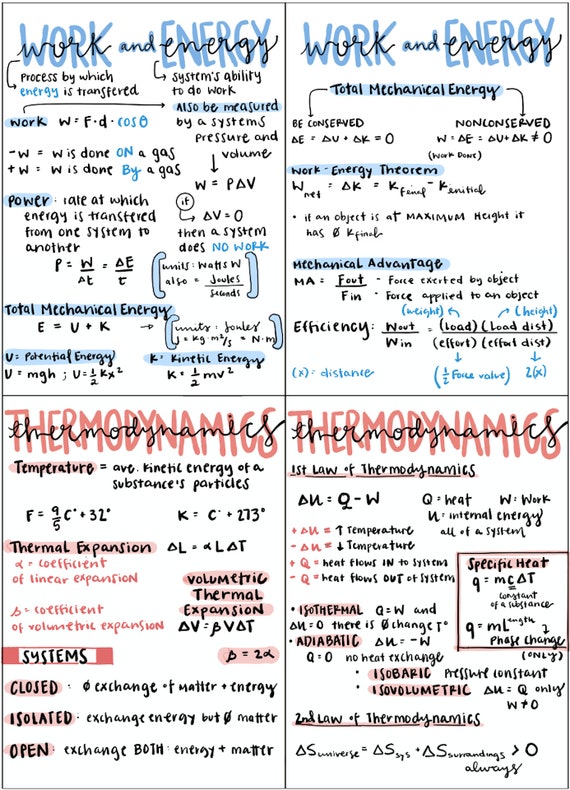 WORK and ENERGY
process by which
energy is transferred
system's ability
to do work
Also be measured
by a systems
pressure and
volume
W = PΔV
if
ΔV = 0
then a system
does NO WORK
Work W = F · d · cosθ
-W = W is done ON a gas
+W = W is done By a gas
Power: rate at which
energy is transferred
from one system to
another
P = W/Δt = ΔE/t
units: Watts W
also = Joules/seconds
Total Mechanical Energy
E = U + K → units: Joules
J = kg·m²/s = N·m
U = Potential Energy
U = mgh ; U = 1/2 Kx²
K = Kinetic Energy
K = 1/2 mv²
WORK and ENERGY
Total Mechanical Energy
BE CONSERVED
ΔE = ΔU + ΔK = 0
NONCONSERVED
W = ΔE = ΔU + ΔK ≠ 0
(WORK DONE)
Work-Energy Theorem
Wnet = ΔK = Kfinal - Kinitial
• if an object is at MAXIMUM Height it
has Ø Kfinal
Mechanical Advantage
MA = Fout/Fin
- Force exerted by object
- Force applied to an object
(weight) (height)
Efficiency: Wout/Win = (Load)(Load dist)/(effort)(effort dist)
(x) = distance
(1/2 Force value) 2(x)
THERMODYNAMICS
Temperature = ave. Kinetic energy of a
substance's particles
F = 9/5 C° + 32° K = C° + 273°
Thermal Expansion ΔL = αLΔT
α = coefficient
of linear expansion
Volumetric
Thermal
Expansion
ΔV = βVΔT
β = coefficient
of volumetric expansion
β = 2α
SYSTEMS
CLOSED: Ø exchange of matter + energy
ISOLATED: exchange energy but Ø matter
OPEN: exchange BOTH: energy + matter
THERMODYNAMICS
1st Law of Thermodynamics
ΔU = Q - W
Q = heat W = Work
U = internal energy
all of a system
+ΔU = ↑ Temperature
-ΔU = ↓ Temperature
+Q = heat flows IN to system
-Q = heat flows OUT of system
Specific Heat
q = mcΔT
constant
of a substance
q = mL
phase change
(ONLY)
• ISOTHERMAL Q = W and
ΔU = 0 there is Ø change T°
• ADIABATIC ΔU = -W
Q = 0 no heat exchange
• ISOBARIC Pressure constant
• ISOVOLUMETRIC ΔU = Q only
W ≠ 0
2nd Law of Thermodynamics
ΔSuniverse = ΔSsys + ΔSsurroundings > 0
always